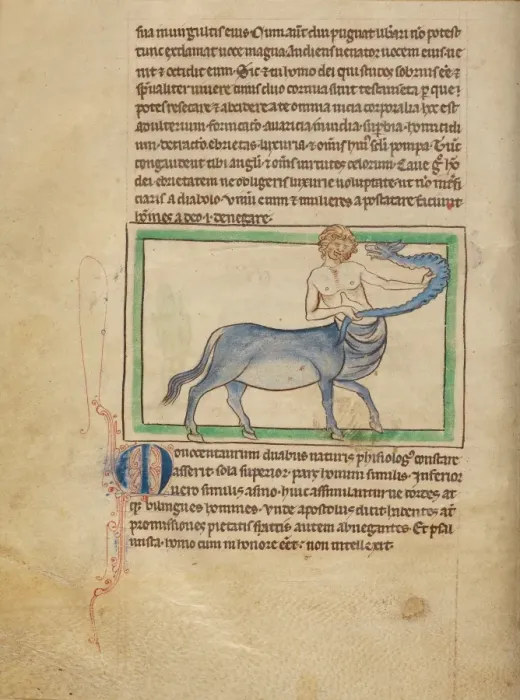 sua in uirgultis eius. Cum aut̄ diu pugnat lib̄ari nō potest
tunc exclamat uoce magna. Audiens uenator uocem eius ue
nit & occidit eum. Sic & tu homo dei qui studes sobrius eē &
sp̄ualiter uiuere cuius duo cornua sunt testam̄ta p que
potes resecare & abscidere a te omnia uicia corporalia hoc est
adulterium. fornicatio. auaricia. inuidia. supbia. homicidi
um. detractō. ebrietas. luxuria. & om̄is hui᾽ scl̄i pompa. Tūc
congaudent tibi angl̄i & om̄s uirtutes celorum. Caue g̊ hō
dei ebrietatem ne obligeris luxurie uoluptate ut nō int̄fi
ciaris a diabolo. Vinū enim & mulieres apostatare faciunt
hōines a deo .i. denegare.
Onocentaurum duabus naturis phisiolog᾽ constare
asserit. sola superior pars homini similis. Inferior
uero similis asino. huic assimilantur uecordes at
q; bilingues homines. Vnde apostolus dicit. habentes at̄
promissiones pietatis sp̄etiē autem abnegantes. Et psal
mista. homo cum in honore eēt. non intellexit.